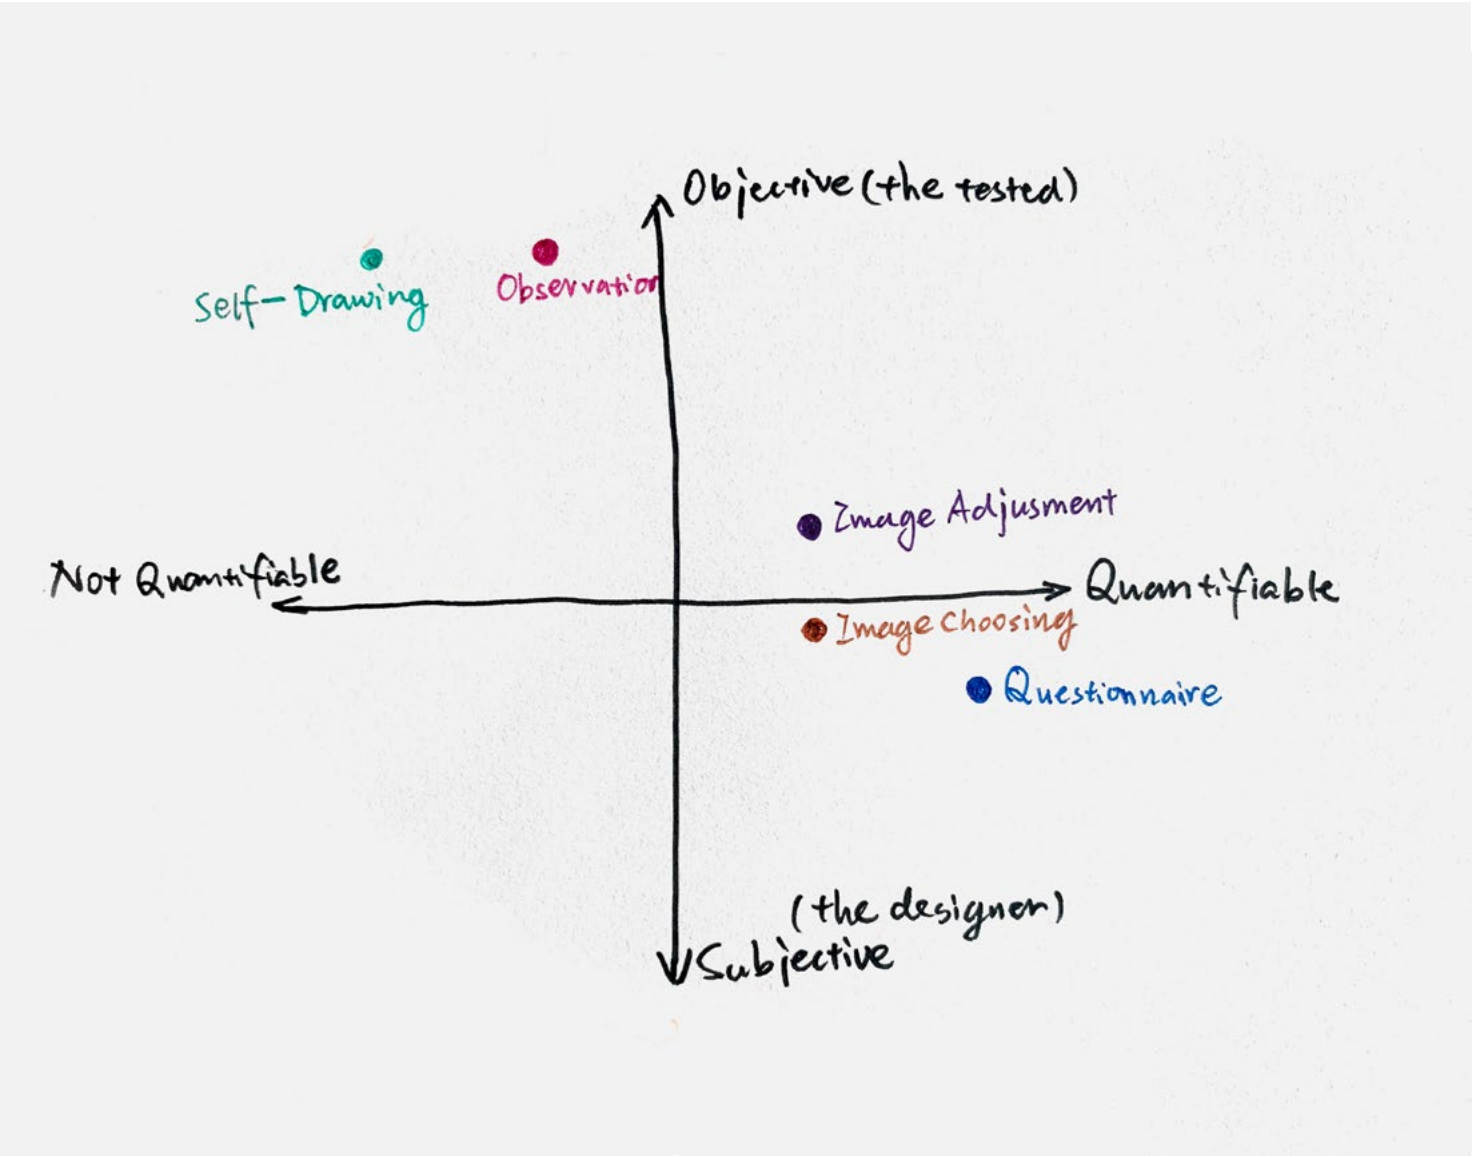 Objective (the tested)
Self-Drawing
Observation
Image Adjusment
Not Quantifiable
Quantifiable
Image Choosing
Questionnaire
(the designer)
Subjective